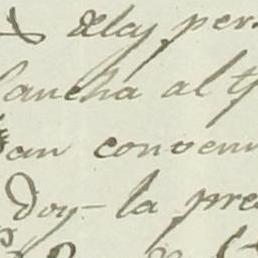 delas per
ancha al t
an conven
Doy la pre